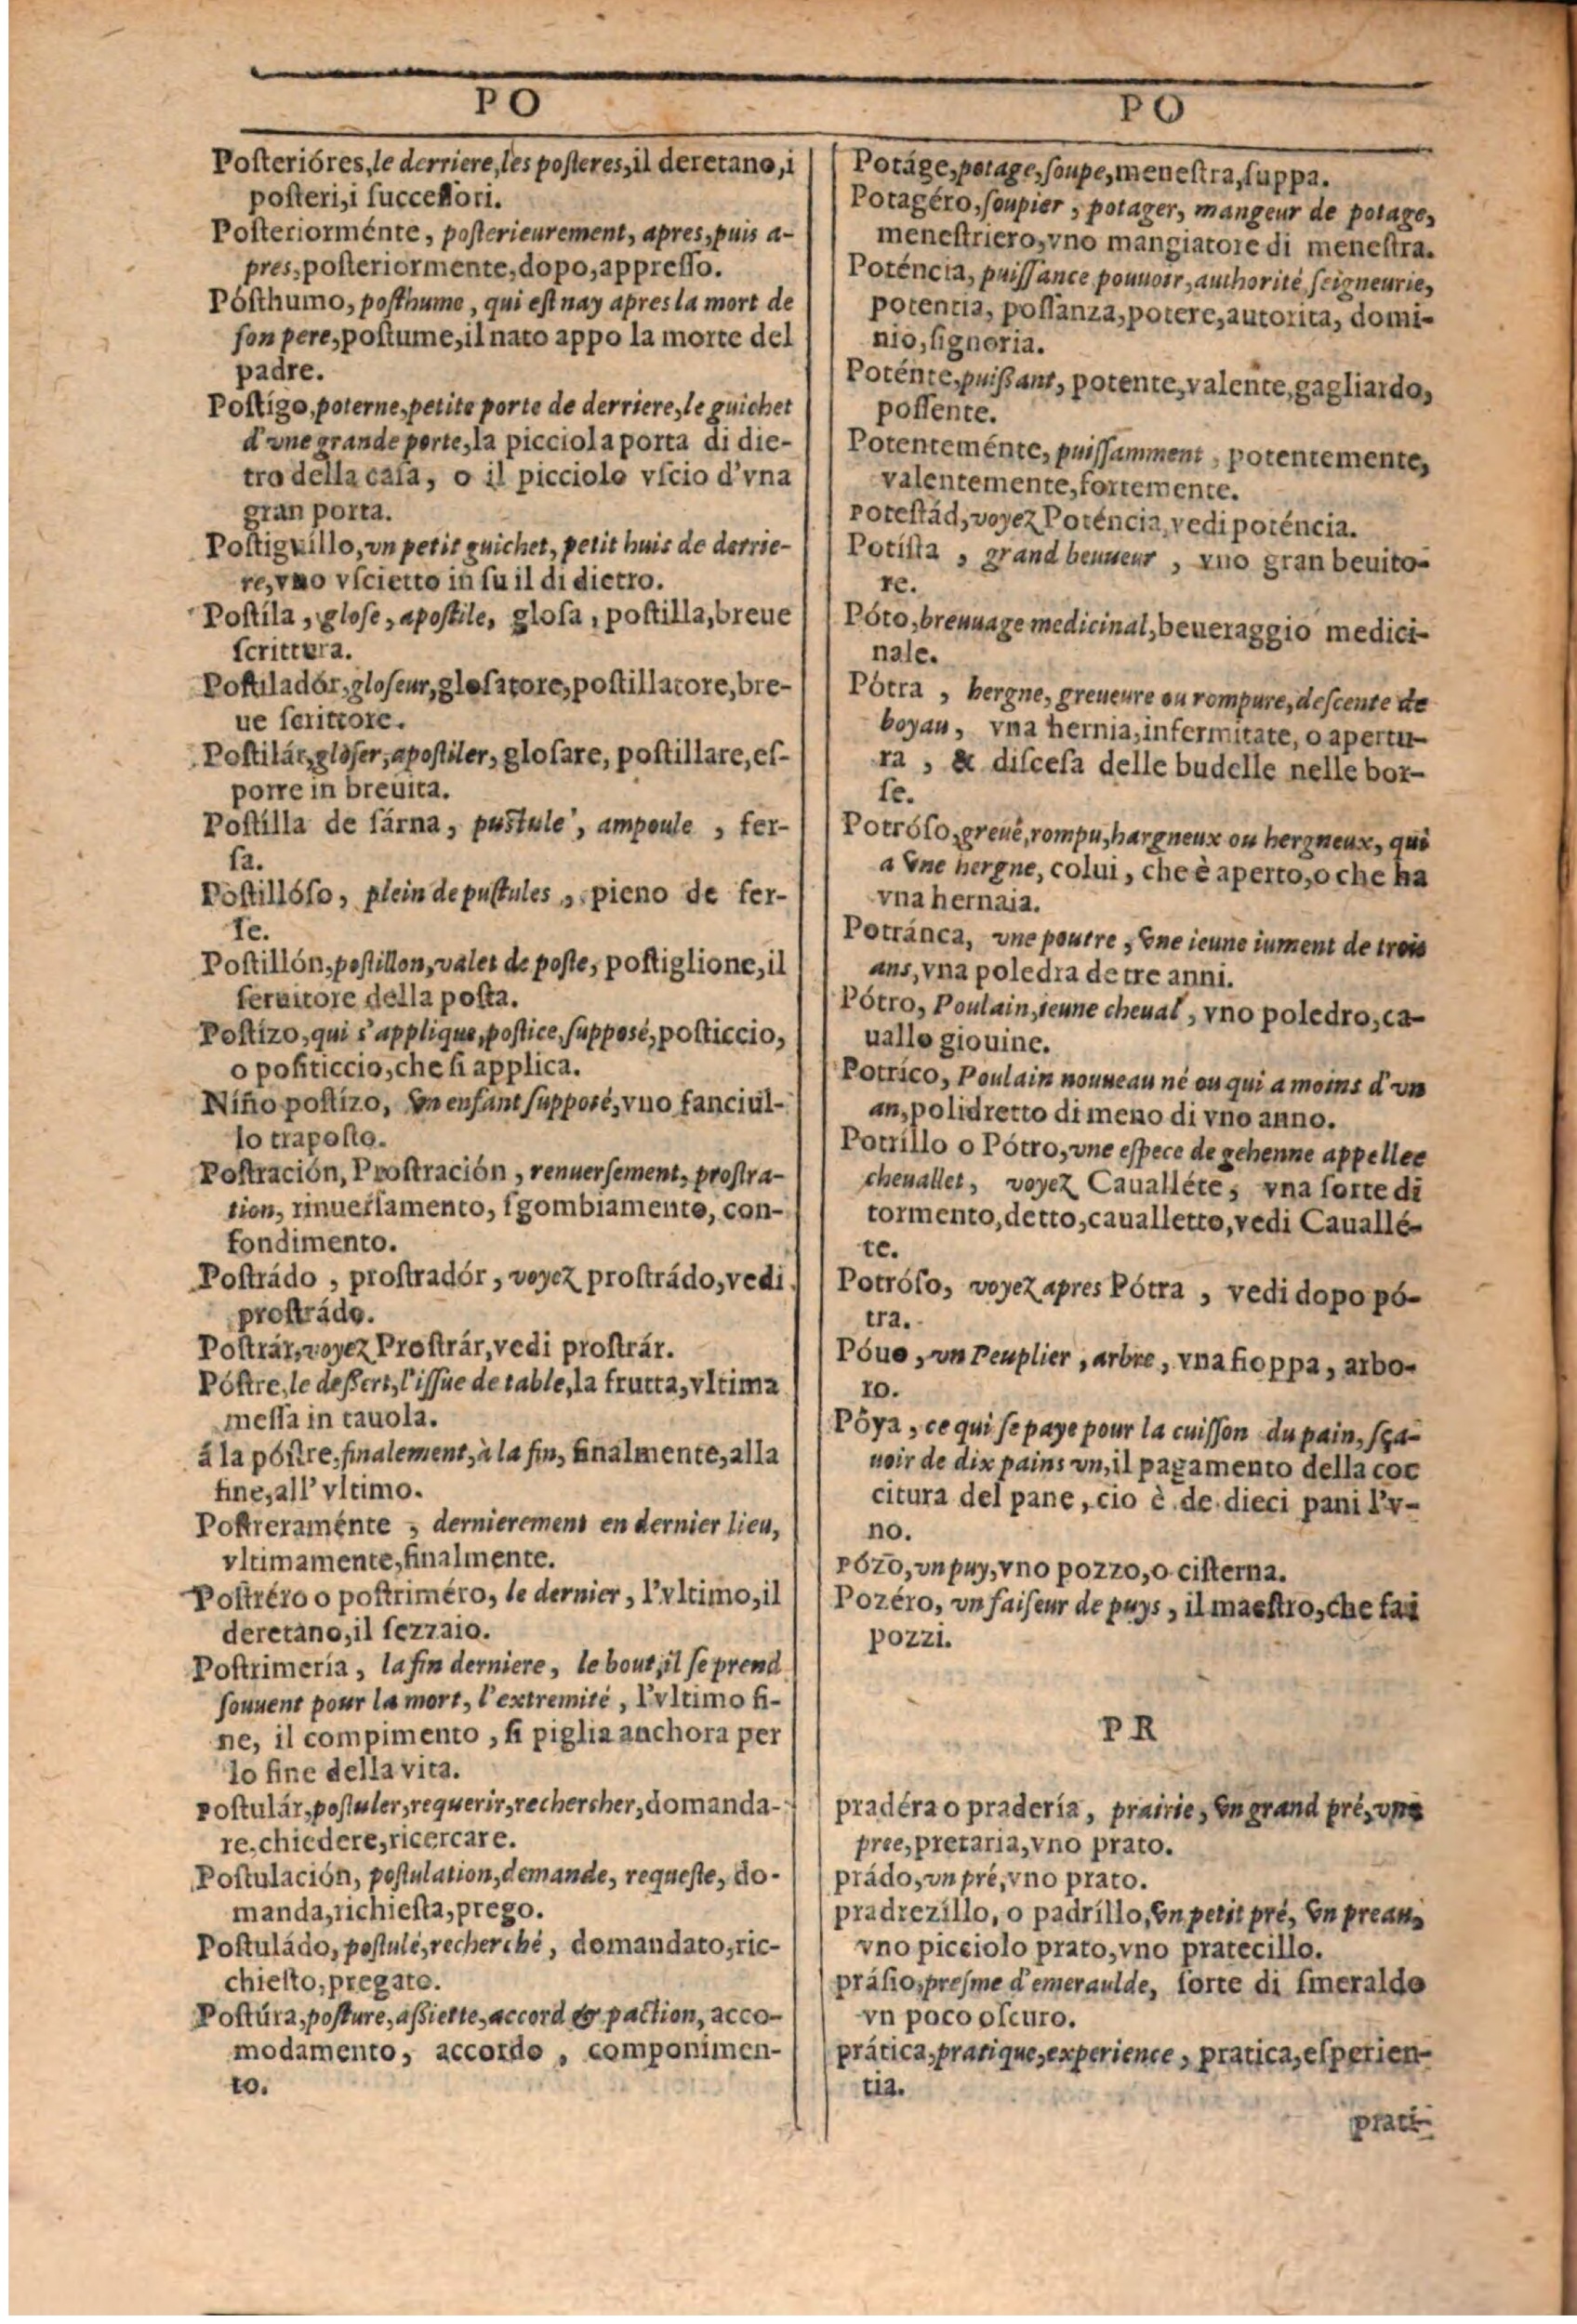 PO
Posterióres, le derriere, les posteres, il deretano, i
posteri, i successori.
Posteriorménte, posterieurement, apres, puis a-
pres, posteriormente, dopo, appresso.
Pósthumo, posthume, qui est nay apres la mort de
son pere, postume, il nato appo la morte del
padre.
Postígo, poterne, petite porte de derriere, le guichet
d'vne grande porte, la picciola porta di die-
tro della casa, o il picciolo vscio d'vna
gran porta.
Postiguíllo, vn petit guichet, petit huis de derrie-
re, vno vscietto in su il di dietro.
Postíla, glose, apostile, glosa, postilla, breue
scrittura.
Postiladór, gloseur, glosatore, postillatore, bre-
ue scrittore.
Postilár, gloser, apostiler, glosare, postillare, es-
porre in breuita.
Postílla de sárna, pustule, ampoule, fer-
sa.
Postillóso, plein de pustules, pieno de fer-
se.
Postillón, postillon, valet de poste, postiglione, il
seruitore della posta.
Postízo, qui s'applique, postice, supposé, posticcio,
o positiccio, che si applica.
Niño postízo, vn enfant supposé, vuo fanciul-
lo traposto.
Postración, Prostración, renuersement, prostra-
tion, rinuersamento, sgombiamento, con-
fondimento.
Postrádo, prostradór, voyez prostrádo, vedi
prostrádo.
Postrár, voyez Prostrár, vedi prostrár.
Póstre, le dessert, l'issue de table, la frutta, vltima
messa in tauola.
á la póstre, finalement, à la fin, finalmente, alla
fine, all' vltimo.
Postreraménte, dernierement en dernier lieu,
vltimamente, finalmente.
Postréro o postriméro, le dernier, l'vltimo, il
deretano, il sezzaio.
Postrimería, la fin derniere, le bout, il se prend
souuent pour la mort, l'extremité, l'vltimo fi-
ne, il compimento, si piglia anchora per
lo fine della vita.
Postulár, postuler, requerir, rechercher, domanda-
re, chiedere, ricercare.
Postulación, postulation, demande, requeste, do-
manda, richiesta, prego.
Postuládo, postulé, recherché, domandato, ric-
chiesto, pregato.
Postúra, posture, assiette, accord & paction, acco-
modamento, accordo, componimen-
to.
PO
Potáge, potage, soupe, menestra, suppa.
Potagéro, soupier, potager, mangeur de potage,
menestriero, vno mangiatore di menestra.
Poténcia, puissance pouuoir, authorité seigneurie,
potentia, possanza, potere, autorita, domi-
nio, signoria.
Poténte, puissant, potente, valente, gagliardo,
possente.
Potenteménte, puissamment, potentemente,
valentemente, fortemente.
Potestád, voyez Poténcia, vedi poténcia.
Potísta, grand beuueur, vno gran beuito-
re.
Póto, breuuage medicinal, beueraggio medici-
nale.
Pótra, hergne, greueure ou rompure, descente de
boyau, vna hernia, infermitate, o apertu-
ra, & discesa delle budelle nelle bor-
se.
Potróso, greué, rompu, hargneux ou hergneux, qui
a vne hergne, colui, che è aperto, o che ha
vna hernaia.
Potránca, vne poutre, vne ieune iument de trois
ans, vna poledra de tre anni.
Pótro, Poulain, ieune cheual, vno poledro, ca-
uallo giouine.
Potríco, Poulain nouueau né ou qui a moins d'vn
an, polidretto di meno di vno anno.
Potríllo o Pótro, vne espece de gehenne appellee
cheuallet, voyez Cauálléte, vna sorte di
tormento, detto, caualletto, vedi Cauallé-
te.
Potróso, voyez apres Pótra, vedi dopo pó-
tra.
Póuo, vn Peuplier, arbre, vna fioppa, arbo-
ro.
Póya, ce qui se paye pour la cuisson du pain, sça-
uoir de dix pains vn, il pagamento della coc
citura del pane, cio è de dieci pani l'v-
no.
Pózo, vn puy, vno pozzo, o cisterna.
Pozéro, vn faiseur de puys, il maestro, che fai
pozzi.
PR
pradéra o pradería, prairie, vn grand pré, vne
pree, pretaria, vno prato.
prádo, vn pré, vno prato.
pradrezíllo, o padríllo, vn petit pré, vn preau,
vno picciolo prato, vno pratecillo.
prásio, presme d'emeraulde, sorte di smeraldo
vn poco oscuro.
prática, pratique, experience, pratica, esperien-
tia.
prati-